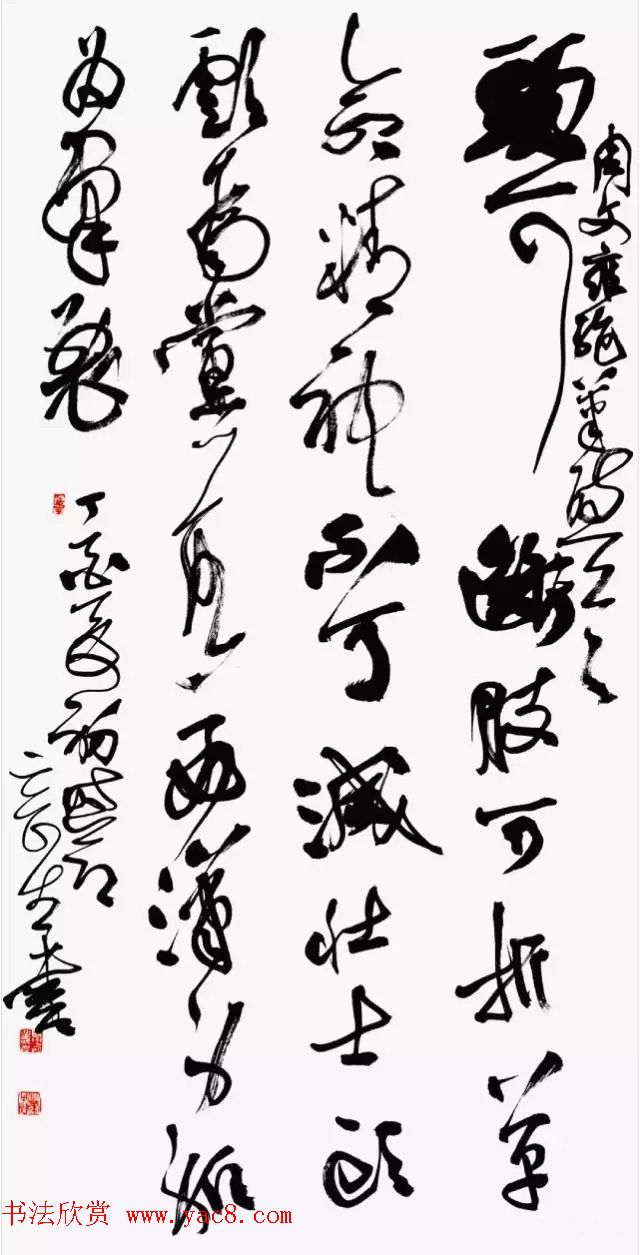 周文雍絶筆詩
頭可斷肢可折革
命精神不可滅壮士頭
顱为黨落好漢身軀
为羣裂
丁酉夏初
書
书法欣赏 www.yac8.com